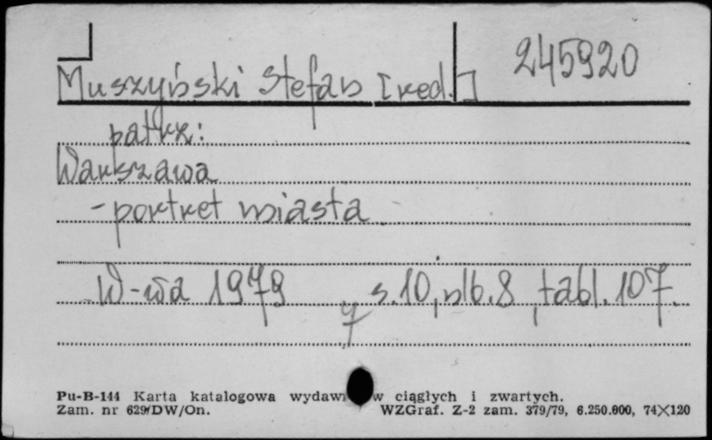 245920
Muszyński Stefan [red.]
patrz:
Warszawa
- portret miasta
W-wa 1979 s. 10, nlb. 8, tabl. 107.
Pu-B-144 Karta katalogowa wydawn w ciągłych i zwartych.
Zam. nr 629/DW/On. WZGraf. Z-2 zam. 379/79, 6.250.000, 74X120